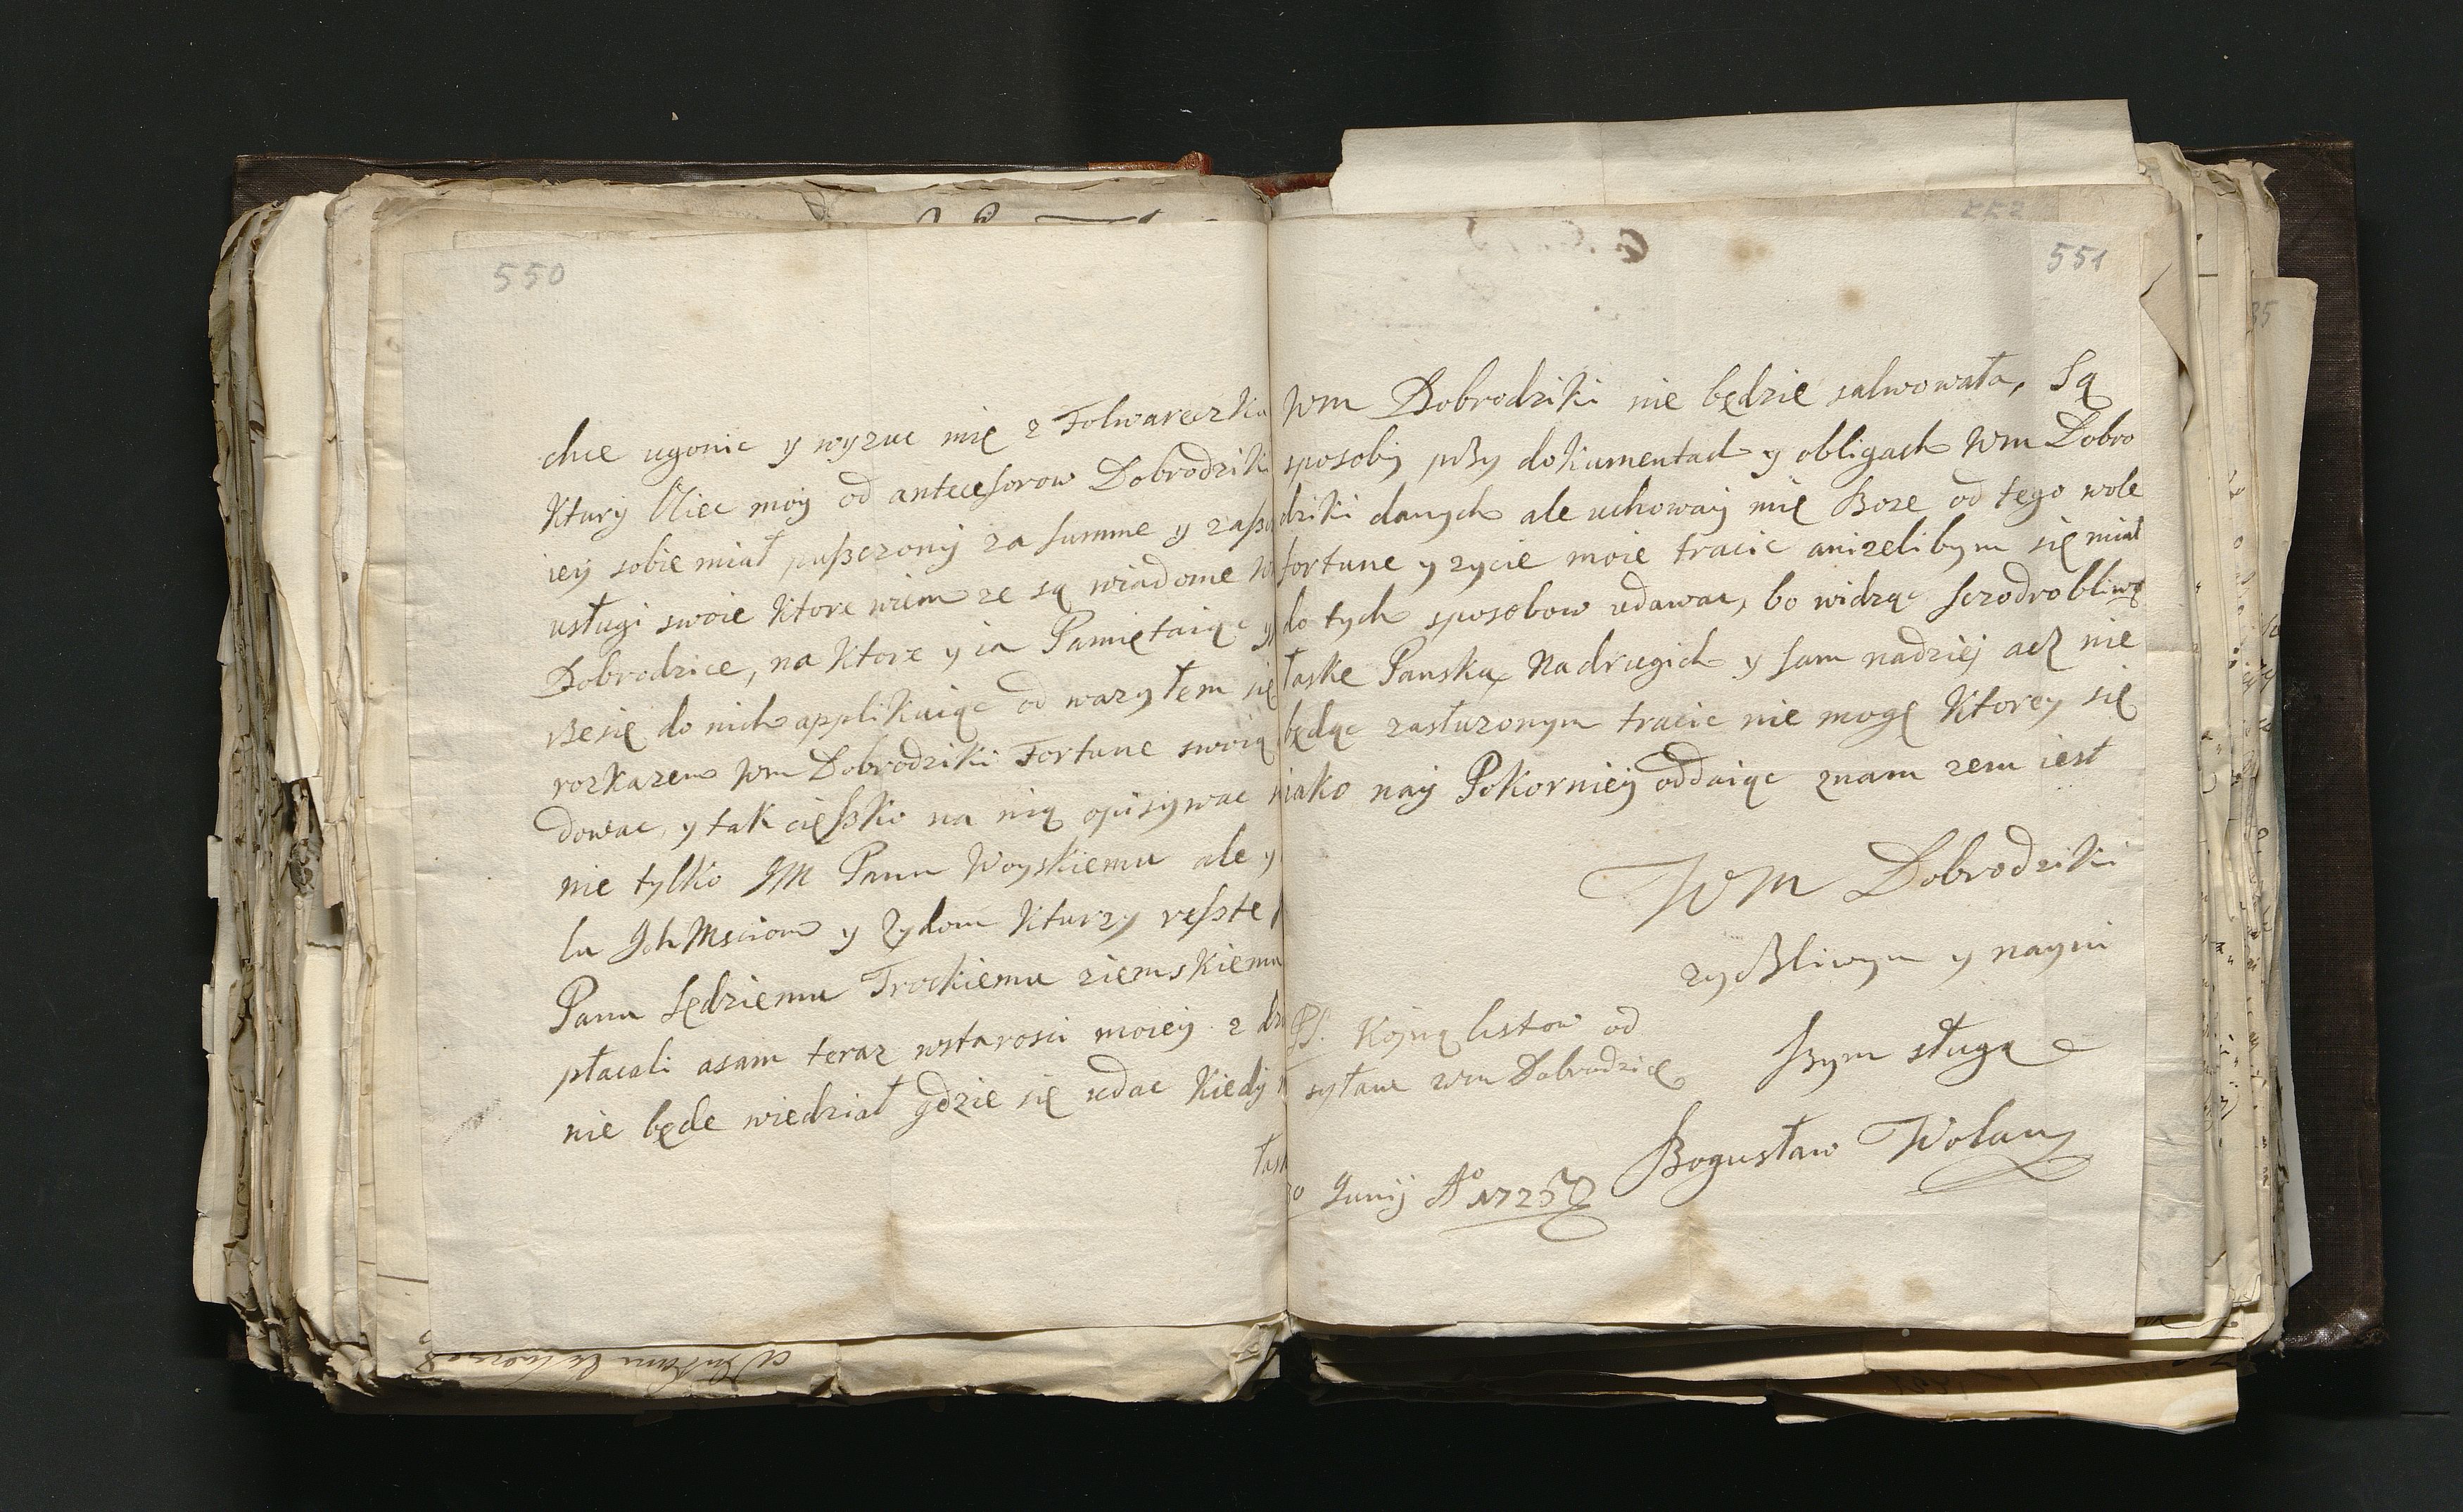 550
chce ugonic y wyzuc mię z Folwareczku
Ktury Ociec moy od antecesorow Dobrodziki
iey sobie miał pußczony za summe y zaß
usługi swoie Ktore wiem ze są wiadome
Dobrodzice, na Ktore y ia Pamiętaiąc y
ße się do nich applikuiąc od wazyłem się
rozkazem Wm Dobrodziki Fortune swoią
dowac, y tak cięßko na nią opisywac
nie tylko JM Panu Woyskiemu ale y
lu Ich Msciom y Zydom Kturzy reßte
Panu Sędziemu Trockiemu ziemskiemu
płacili asam teraz wstarosci moiey z
nie będe wiedział gdzie się udac Kiedy
551
Wm Dobrodziki nie będzie salwowała, Są
sposoby pßy dokumentach y obligach Wm Dobro
dziki danych ale uchoway mię Boze od tego wole
fortune y zycie moie tracic anizelibym się miał
do tych sposobow udawac, bo widząc sczodrobliwą
łaske Panską Na drugich y sam nadziej acz nie
będąc zasłuzonym tracic nie mogę Ktorey się
iako nay Pokorniey oddaiąc znam zem iest
WM Dobrodziki
zyczliwym y nayni
szym sługą
PS. Kopią listow od
syłam Wm Dobrodzice
Bogusław Wolan
Junij Ao 1725